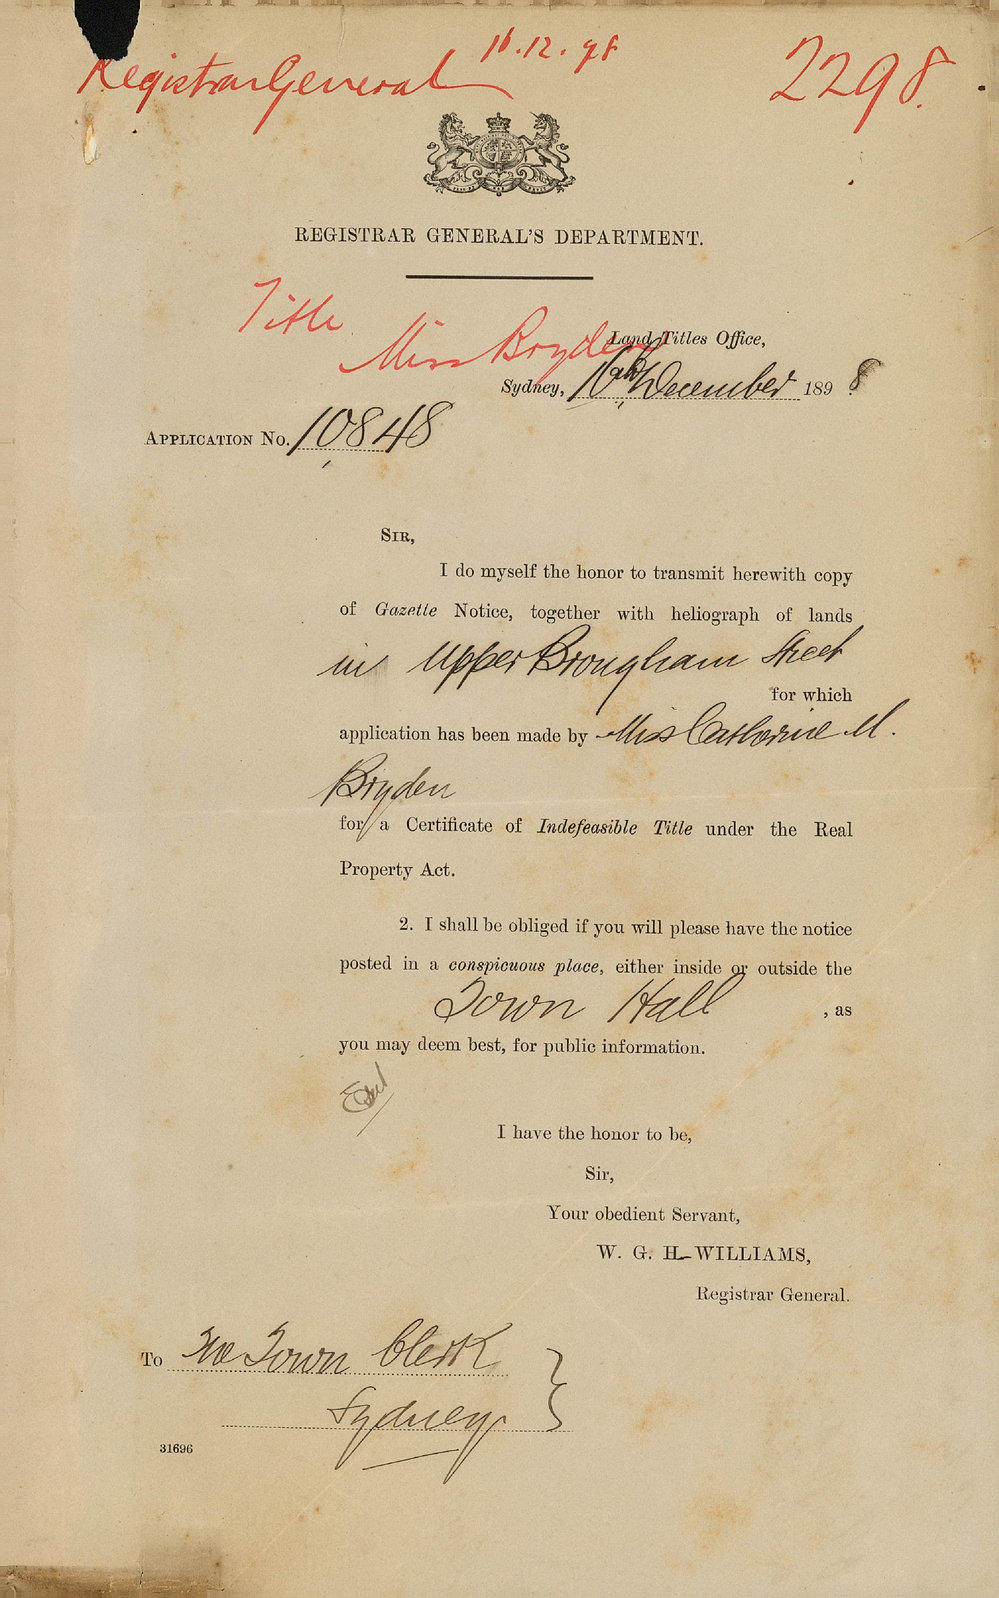 Registrar General 16.12.98
2298.
REGISTRAR GENERAL'S DEPARTMENT.
Title
Miss Bryden
Land Titles Office,
Sydney, 16th December 1898
APPLICATION No. 10848
SIR,
I do myself the honor to transmit herewith copy
of Gazette Notice, together with heliograph of lands
in Upper Brougham Street
for which
application has been made by Miss Catherine M.
Bryden
for a Certificate of Indefeasible Title under the Real
Property Act.
2. I shall be obliged if you will please have the notice
posted in a conspicuous place, either inside or outside the
Town Hall , as
you may deem best, for public information.
I have the honor to be,
Sir,
Your obedient Servant,
W. G. H. WILLIAMS,
Registrar General.
To The Town Clerk
Sydney
31696